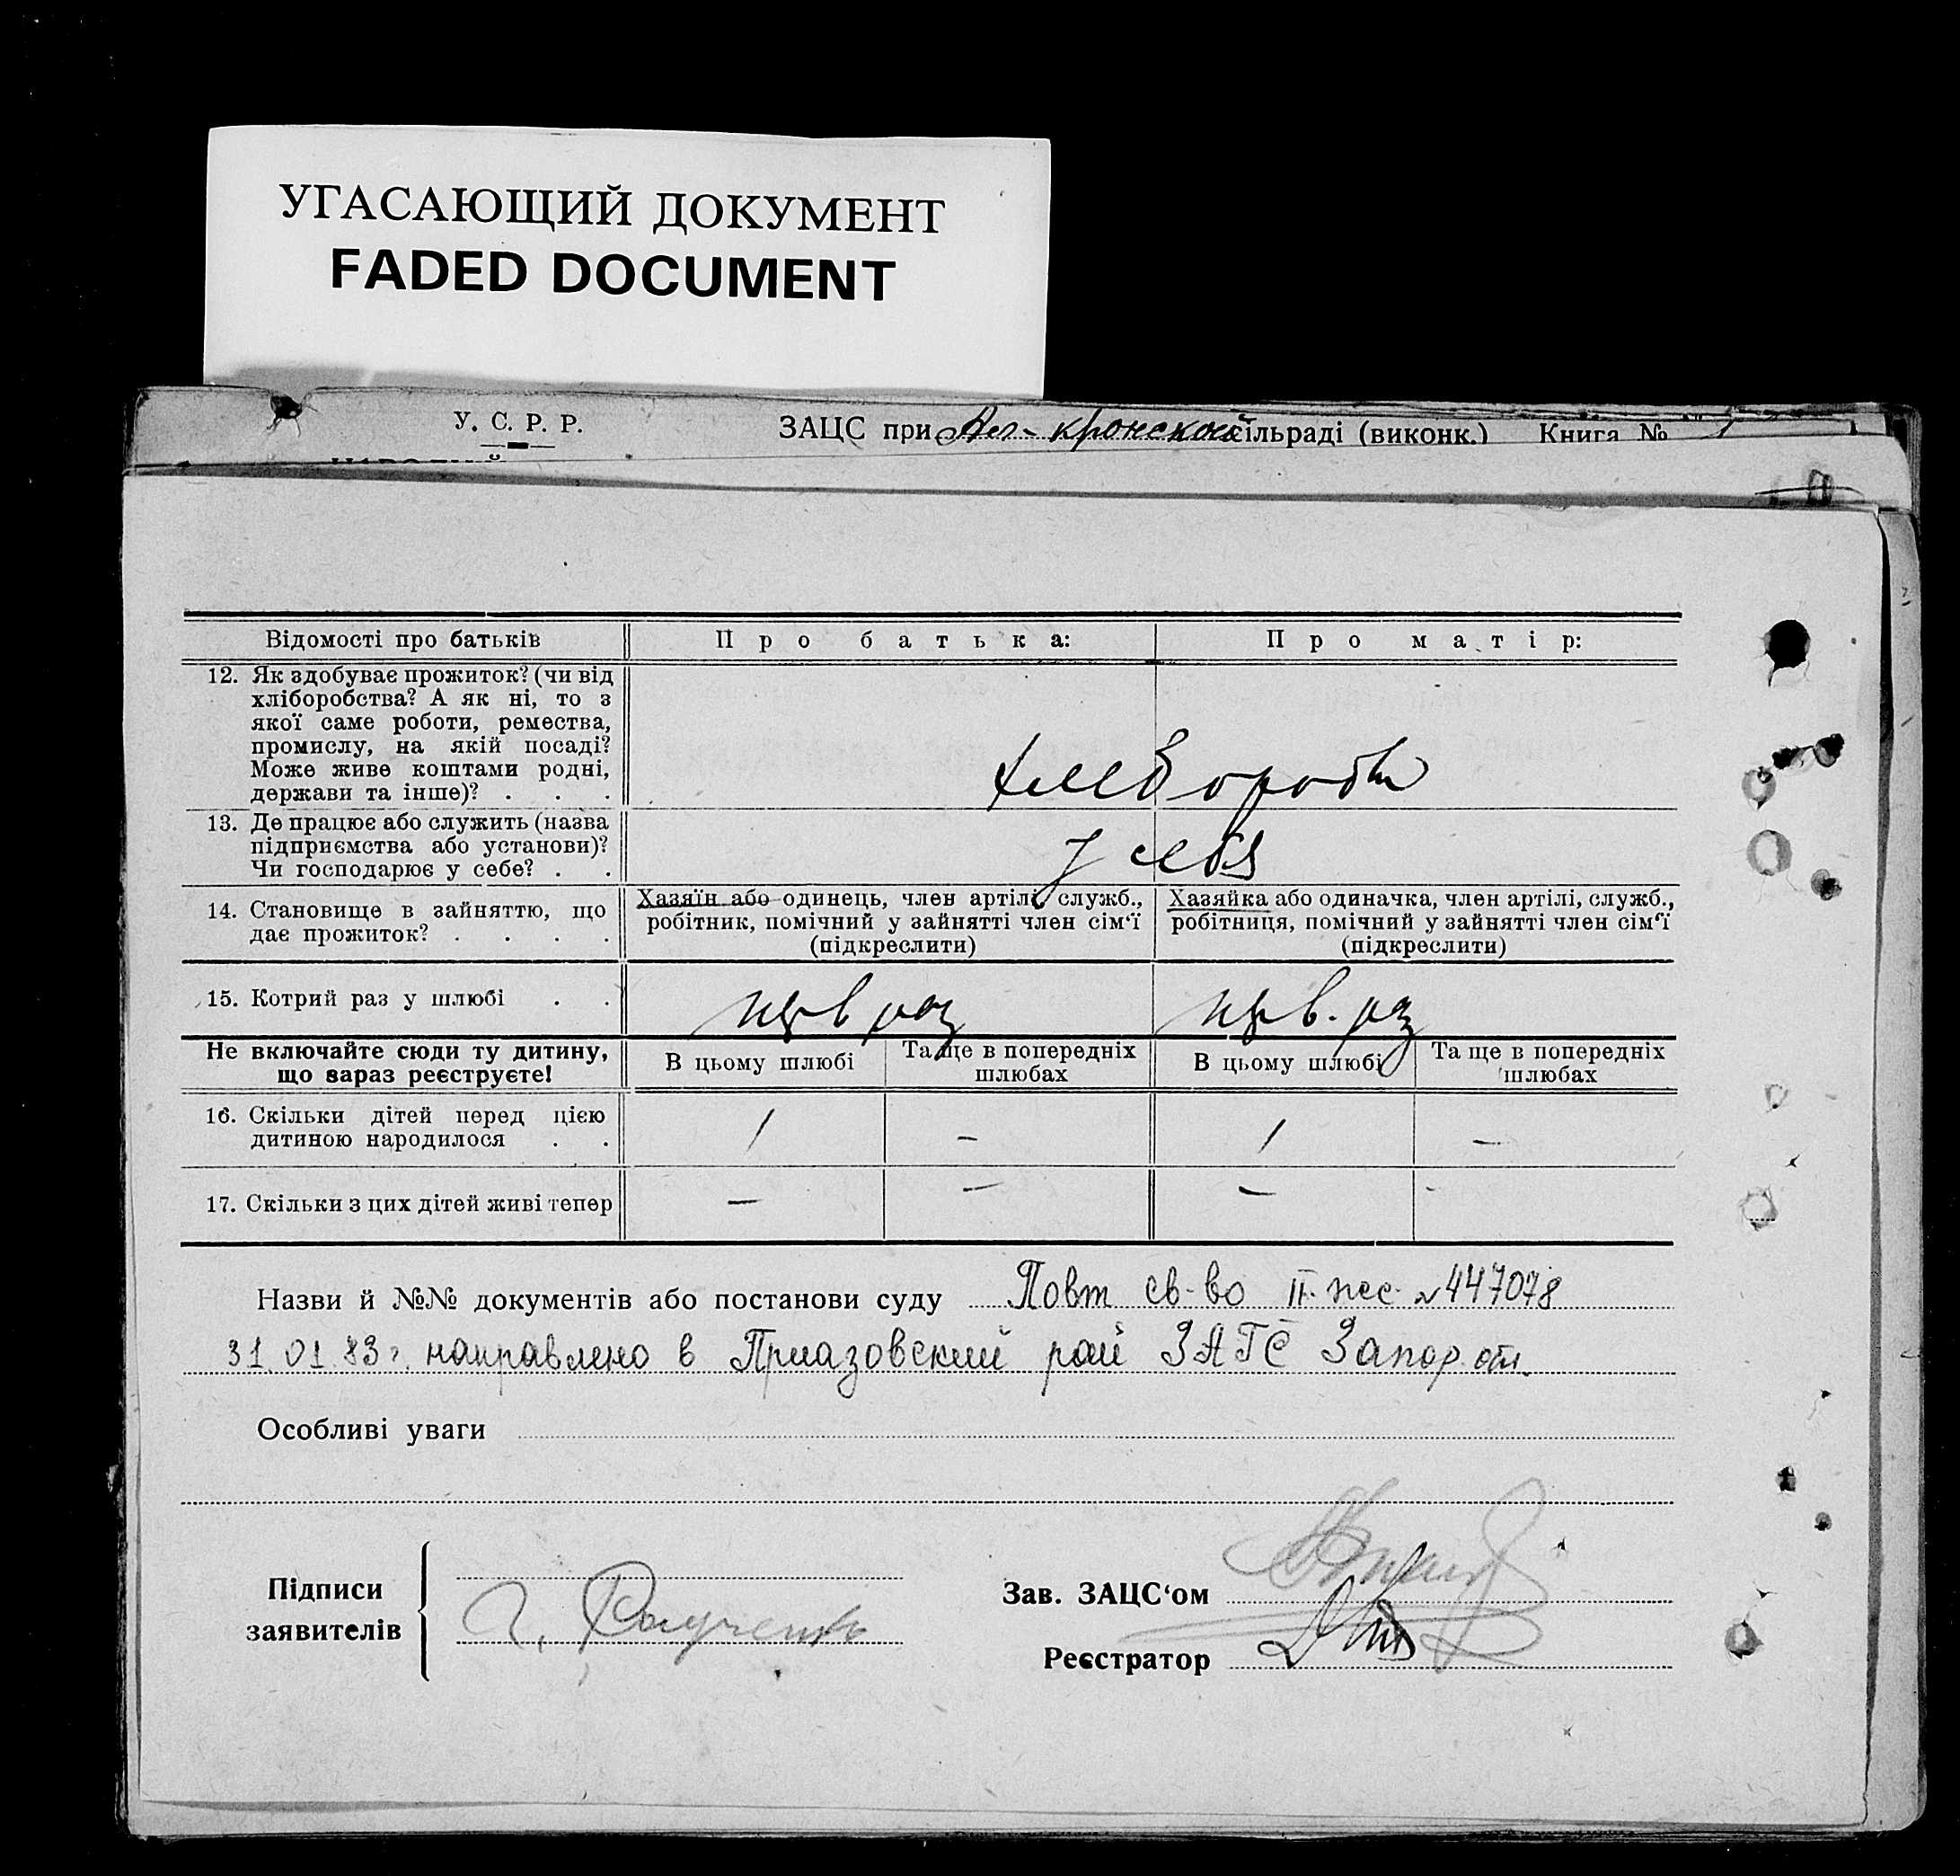 УГАСАЮЩИЙ ДОКУМЕНТ
FADED DOCUMENT
У. С. Р. Р.
ЗАЦС при сільраді (виконк.) Книга №
Відомості про батьків
Про батька:
Про матір:
12. Як здобуває прожиток? (чи від
хліборобства? А як ні, то з
якої саме роботи, ремества,
промислу, на якій посаді?
Може живе коштами родні,
держави та інше)? . . .
хлебороби
13. Де працює або служить (назва
підприємства або установи)?
Чи господарює у себе? . .
у себя
14. Становище в зайняттю, що
дає прожиток? . . . .
Хазяїн або одинець, член артілі, служб.,
робітник, помічний у зайнятті член сім‘ї
(підкреслити)
Хазяйка або одиначка, член артілі, служб.,
робітниця, помічний у зайнятті член сім‘ї
(підкреслити)
15. Котрий раз у шлюбі . .
перв раз
перв. раз
Не включайте сюди ту дитину,
що зараз реєструєте!
В цьому шлюбі
Та ще в попередніх
шлюбах
В цьому шлюбі
Та ще в попередніх
шлюбах
16. Скільки дітей перед цією
дитиною народилося . .
1 – 1 –
17. Скільки з цих дітей живі тепер
– – – -
Назви й №№ документів або постанови суду Повт св-во II. №447078
31.01.83г. направлено в Приазовский рай ЗАГС Запор. обл.
Особливі уваги
Підписи
заявителів
Зав. ЗАЦС‘ом
Реєстратор